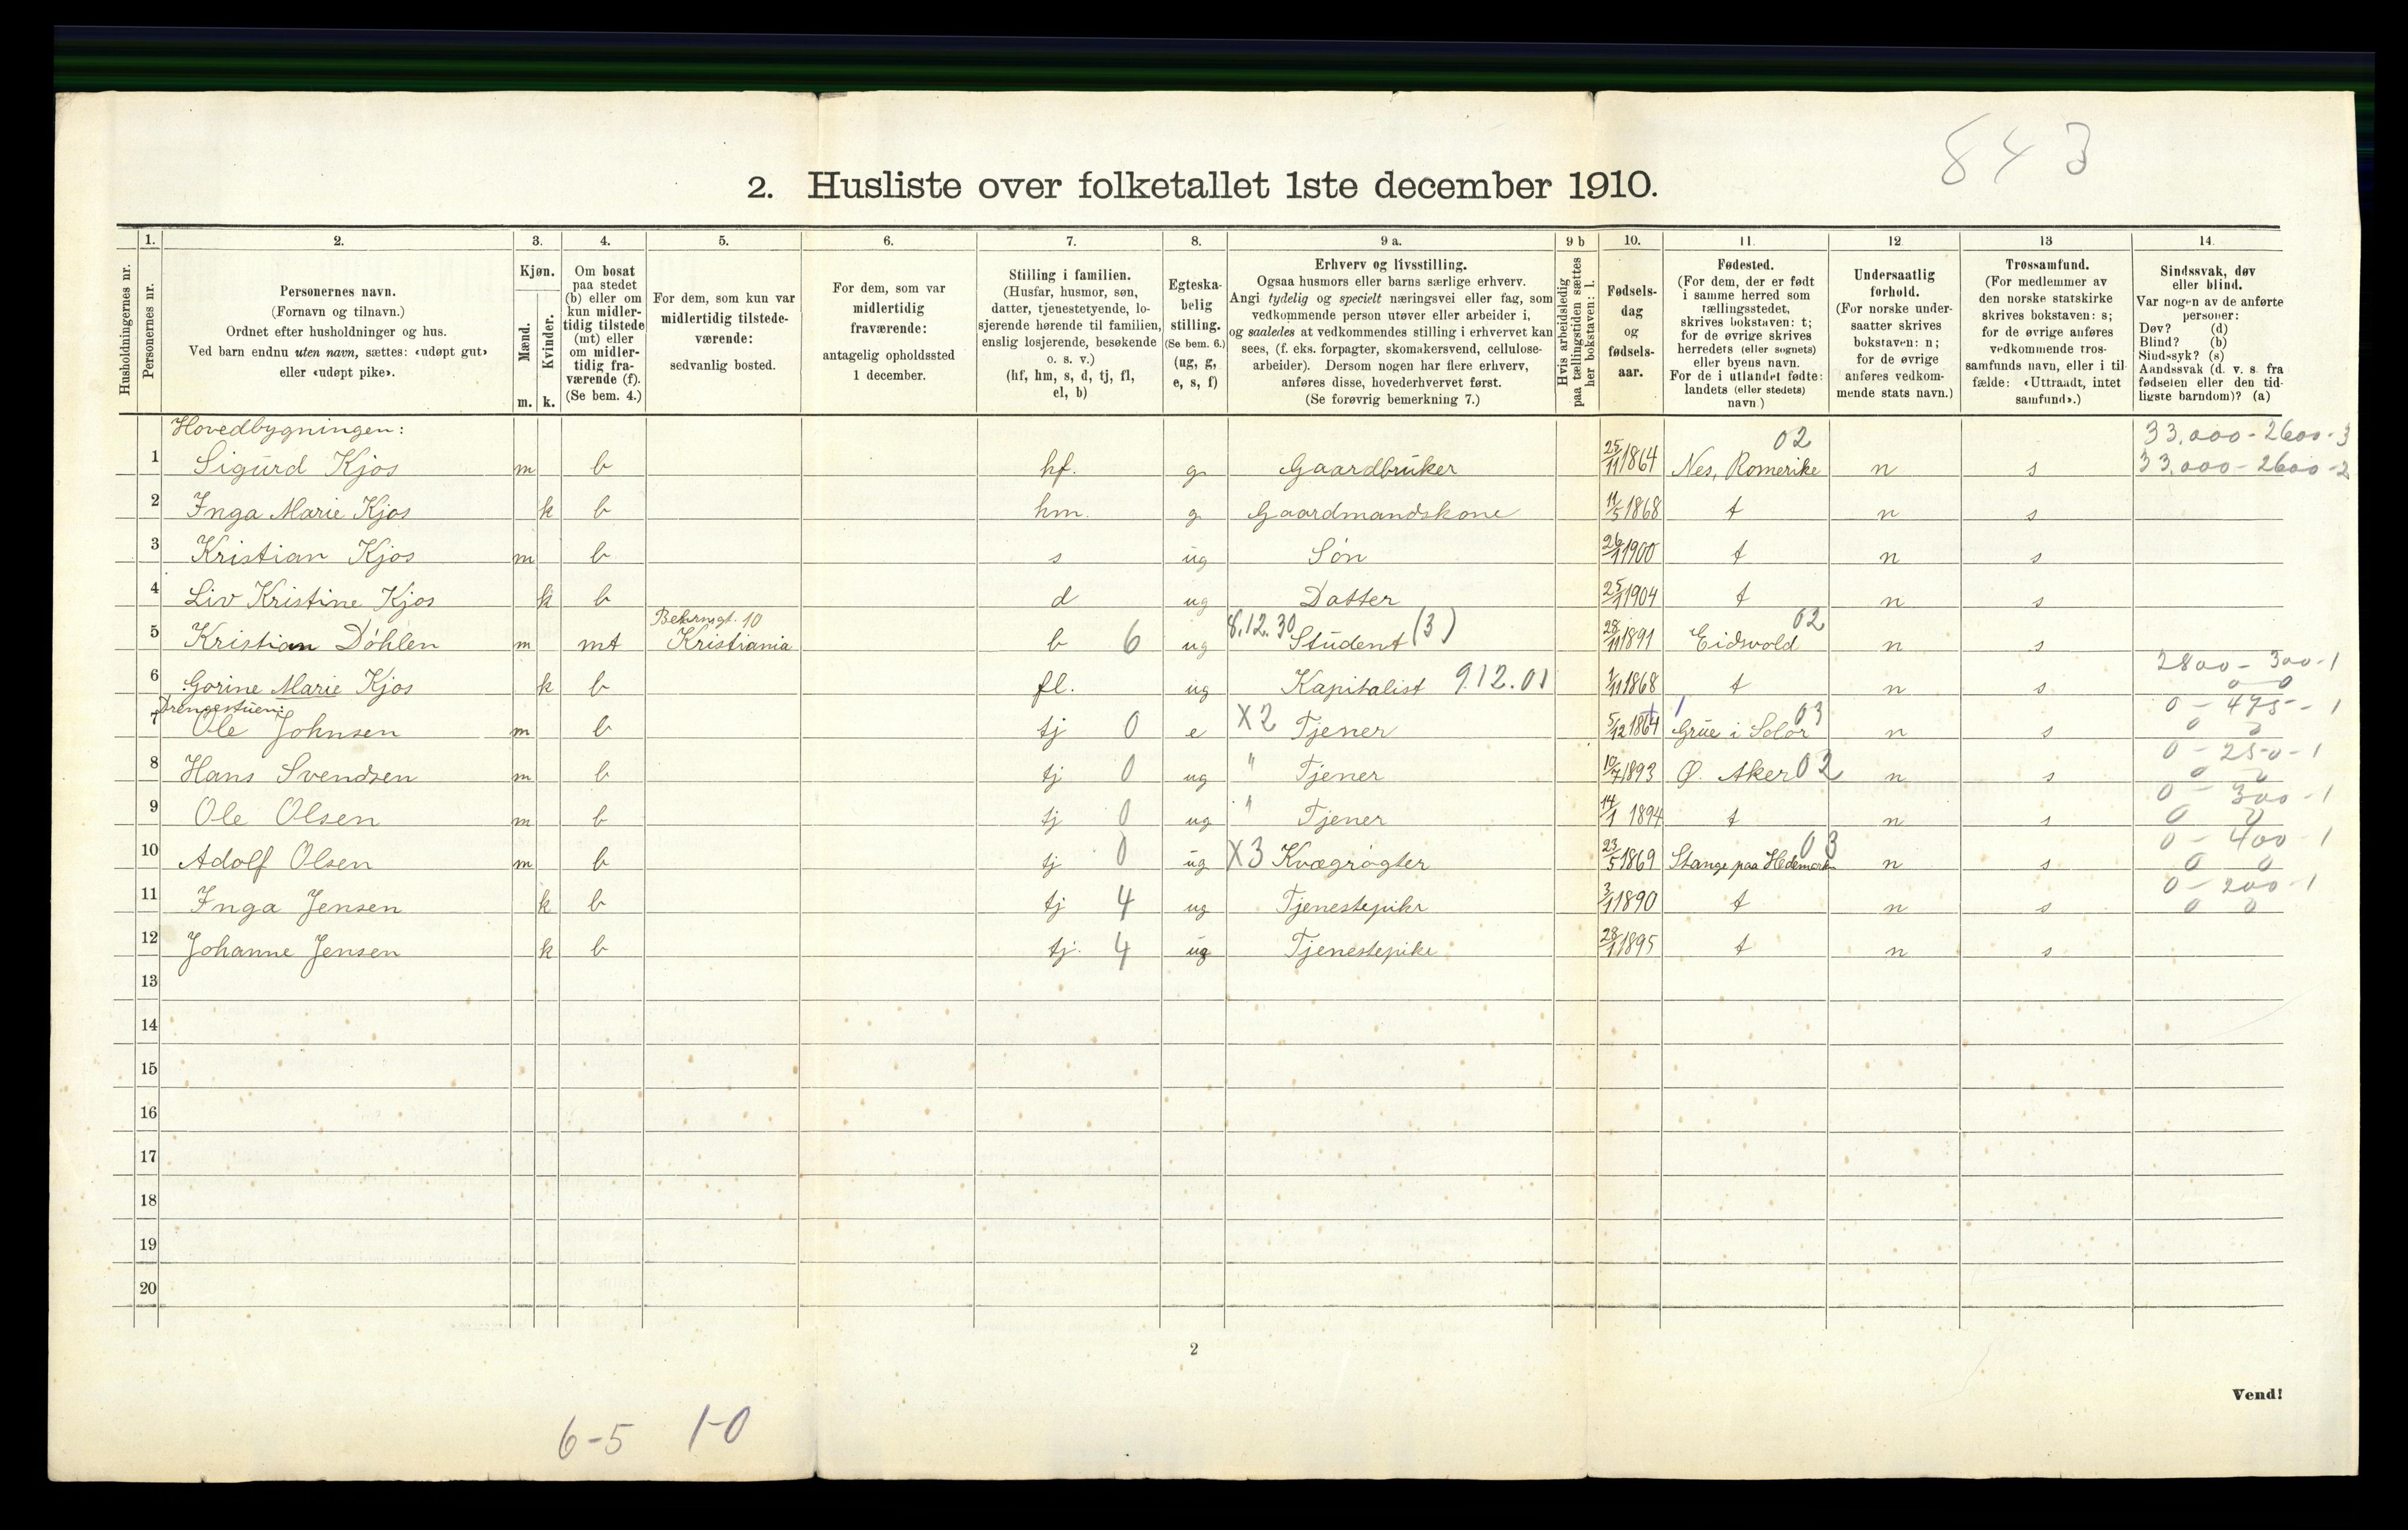 843
2. Husliste over folketallet 1ste december 1910.
Husholdningernes nr.
1. Personernes nr.
2. Personernes navn. (Fornavn og tilnavn.) Ordnet efter husholdninger og hus. Ved barn endnu uten navn, sættes: «udøpt gut» eller «udøpt pike».
3. Kjøn. Mænd. m. Kvinder. k.
4. Om bosat paa stedet (b) eller om kun midlertidig tilstede (mt) eller om midlertidig fraværende (f). (Se bem. 4.)
5. For dem, som kun var midlertidig tilstedeværende: sedvanlig bosted.
6. For dem, som var midlertidig fraværende: antagelig opholdssted 1 december.
7. Stilling i familien. (Husfar, husmor, søn, datter, tjenestetyende, losjerende hørende til familien, enslig losjerende, besøkende o. s. v.) (hf, hm, s, d, tj, fl, el, b)
8. Egteskabelig stilling. (Se bem. 6.) (ug, g, e, s, f)
9 a. Erhverv og livsstilling. Ogsaa husmors eller barns særlige erhverv. Angi tydelig og specielt næringsvei eller fag, som vedkommende person utøver eller arbeider i, og saaledes at vedkommendes stilling i erhvervet kan sees, (f. eks. forpagter, skomakersvend, cellulosearbeider). Dersom nogen har flere erhverv, anføres disse, hovederhvervet først. (Se forøvrig bemerkning 7.)
9 b Hvis arbeidsledig paa tællingstiden sættes her bokstaven: l.
10. Fødselsdag og fødselsaar.
11. Fødested. (For dem, der er født i samme herred som tællingsstedet, skrives bokstaven: t; for de øvrige skrives herredets (eller sognets) eller byens navn. For de i utlandet fødte: landets (eller stedets) navn.)
12 Undersaatlig forhold. (For norske undersaatter skrives bokstaven: n; for de øvrige anføres vedkommende stats navn.)
13 Trossamfund. (For medlemmer av den norske statskirke skrives bokstaven: s; for de øvrige anføres vedkommende trossamfunds navn, eller i tilfælde: «Uttraadt, intet samfund».)
14. Sindssvak, døv eller blind. Var nogen av de anførte personer: Døv? (d) Blind? (b) Sindssyk? (s) Aandssvak (d. v. s. fra fødselen eller den tidligste barndom)? (a)
Hovedbygningen: 02 33.000-2600-3
1 Sigurd Kjos m b hf. g Gaardbruker 25/11 1864 Nes, Romerike n s 33.000-2600-2
2 Inga Marie Kjos k b hm. g Gaardmandskone 11/5 1868 t n s
3 Kristian Kjos m b s ug Søn 26/1 1900 t n s
4 Liv Kristine Kjos k b d ug Datter 25/1 1904 t n s
10 8.12.30 02
5 Kristian Döhlen m mt Kristiania b 6 ug Student (3) 28/11 1891 Eidsvold n s
2800-300-1
6 Gorine Marie Kjos k b fl. ug Kapitalist 9.12.01 1/11 1868 t n s 0 0
Drengestuen: 03 0-475-1
7 Ole Johnsen m b tj 0 e X2 Tjener 5/12 1864 Grue i Solør n s 0 0
0-250-1
8 Hans Svendsen m b tj 0 ug " Tjener 10/7 1893 Ø. Aker 02 n s 0 0
0-300-1
9 Ole Olsen m b tj 0 ug " Tjener 14/1 1894 t n s 0 0
03 0-400-1
10 Adolf Olsen m b tj 0 ug X3 Kvægrøgter 23/5 1869 Stange paa Hedemark n s 0 0
0-200-1
11 Inga Jensen k b tj 4 ug Tjenestepike 3/1 1890 t n s 0 0
12 Johanne Jensen k b tj. 4 ug Tjenestepike 28/1 1895 t n s
13
14
15
16
17
18
19
20
2
Vend!
6-5 1-0